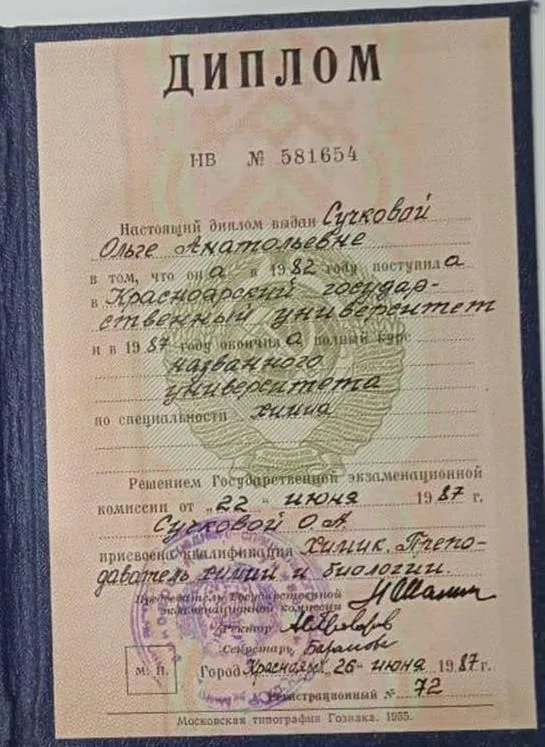 ДИПЛОМ
НВ № 581654
Настоящий диплом выдан Сучковой
Ольге Анатольевне
в том, что она в 1982 году поступила
в Красноярский государ-
ственный университет
и в 1987 году окончила полный курс
названного
университета
по специальности химия
Решением Государственной экзаменационной
комиссии от „22“ июня 1987 г.
Сучковой О.А.
присвоена квалификация Химик. Препо-
даватель химии и биологии.
Председатель Государственной
экзаменационной комиссии
Ректор
Секретарь
М. П.
Город Красноярск, 26 июня 1987 г.
Регистрационный № 72
Московская типография Гознака. 1955.